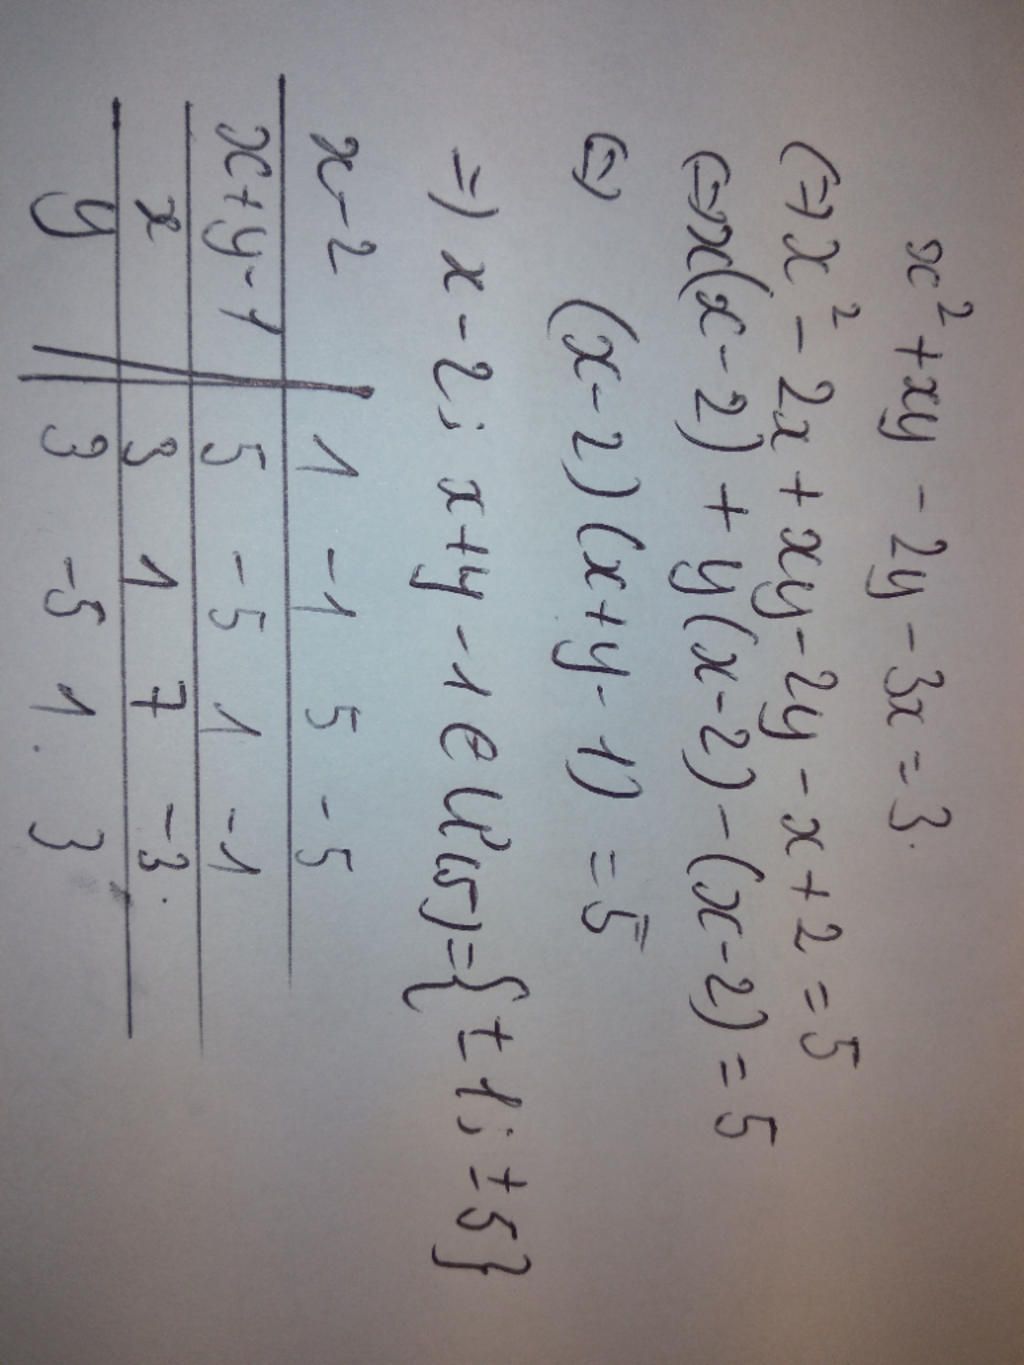 x² + xy - 2y - 3x = 3.
(=) x² - 2x + xy - 2y - x + 2 = 5
(=) x(x - 2) + y(x - 2) - (x - 2) = 5
(=) (x - 2)(x + y - 1) = 5
=) x - 2; x + y - 1 ∈ Ư(5) = {±1; ±5}
x - 2 1 -1 5 -5
x + y - 1 5 -5 1 -1
x 3 1 7 -3.
y 3 -5 1. 3